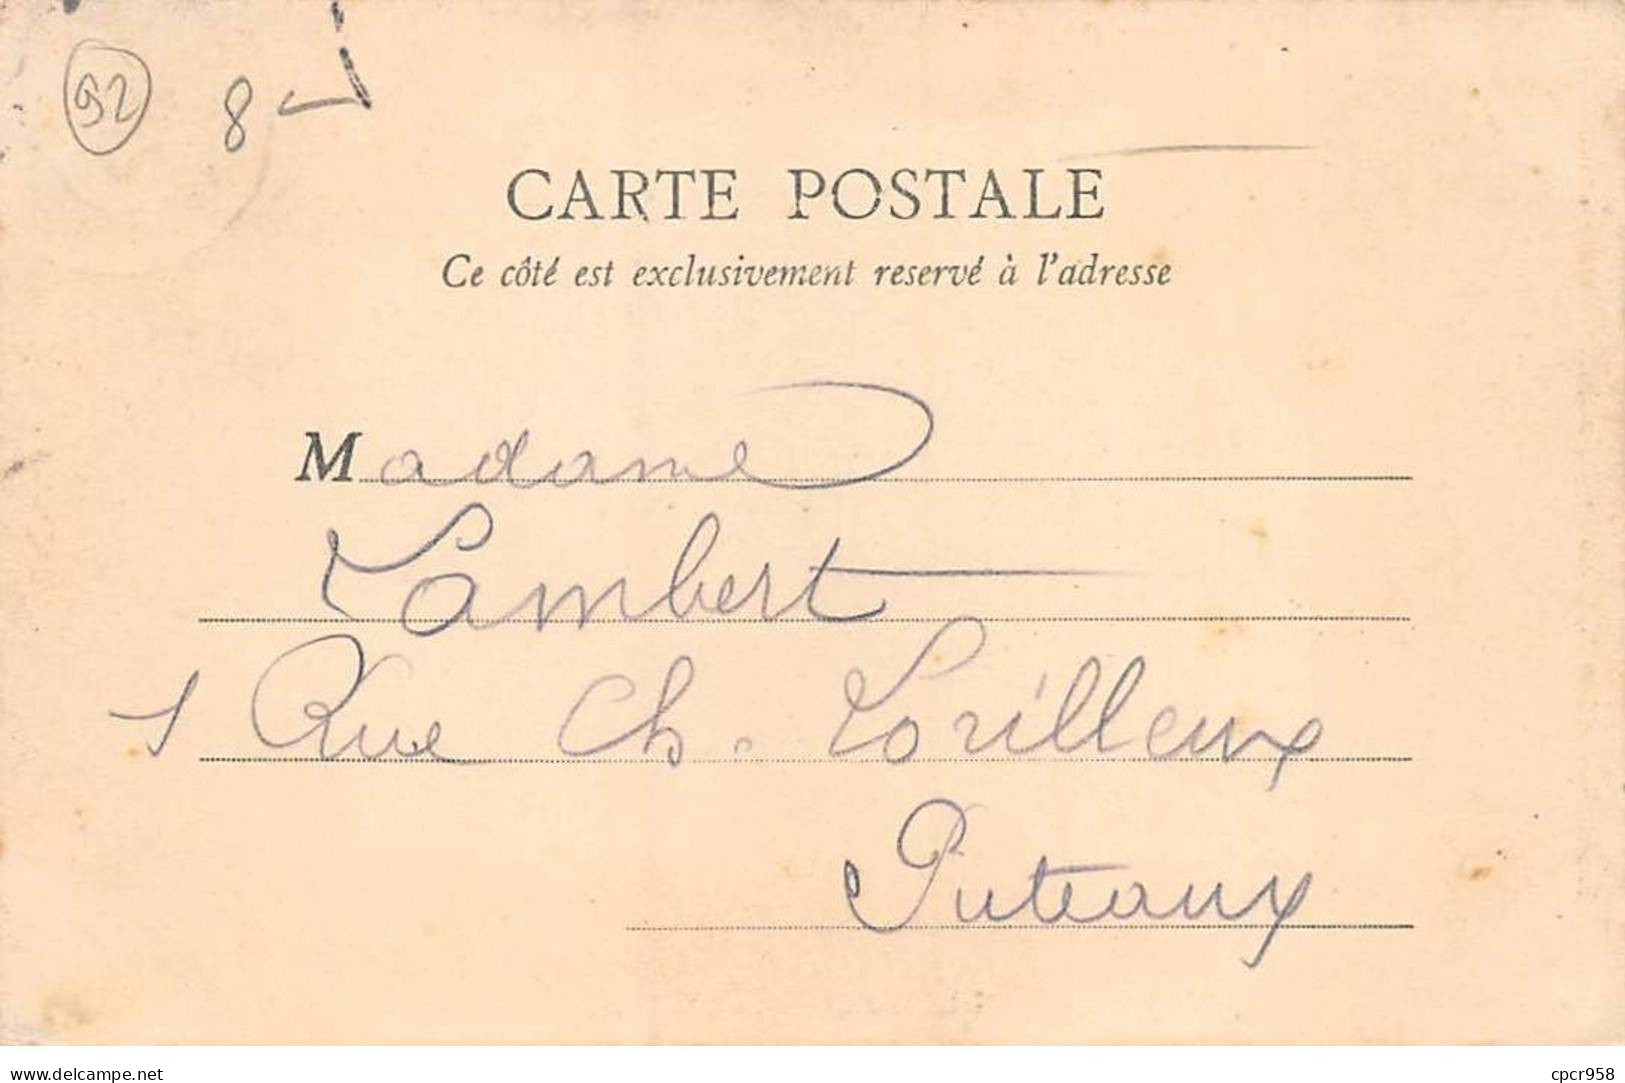 92 8
CARTE POSTALE
Ce côté est exclusivement reservé à l'adresse
Madame
Lambert
1 Rue Ch. Lorilleux
Puteaux
www.delcampe.net cpcr958